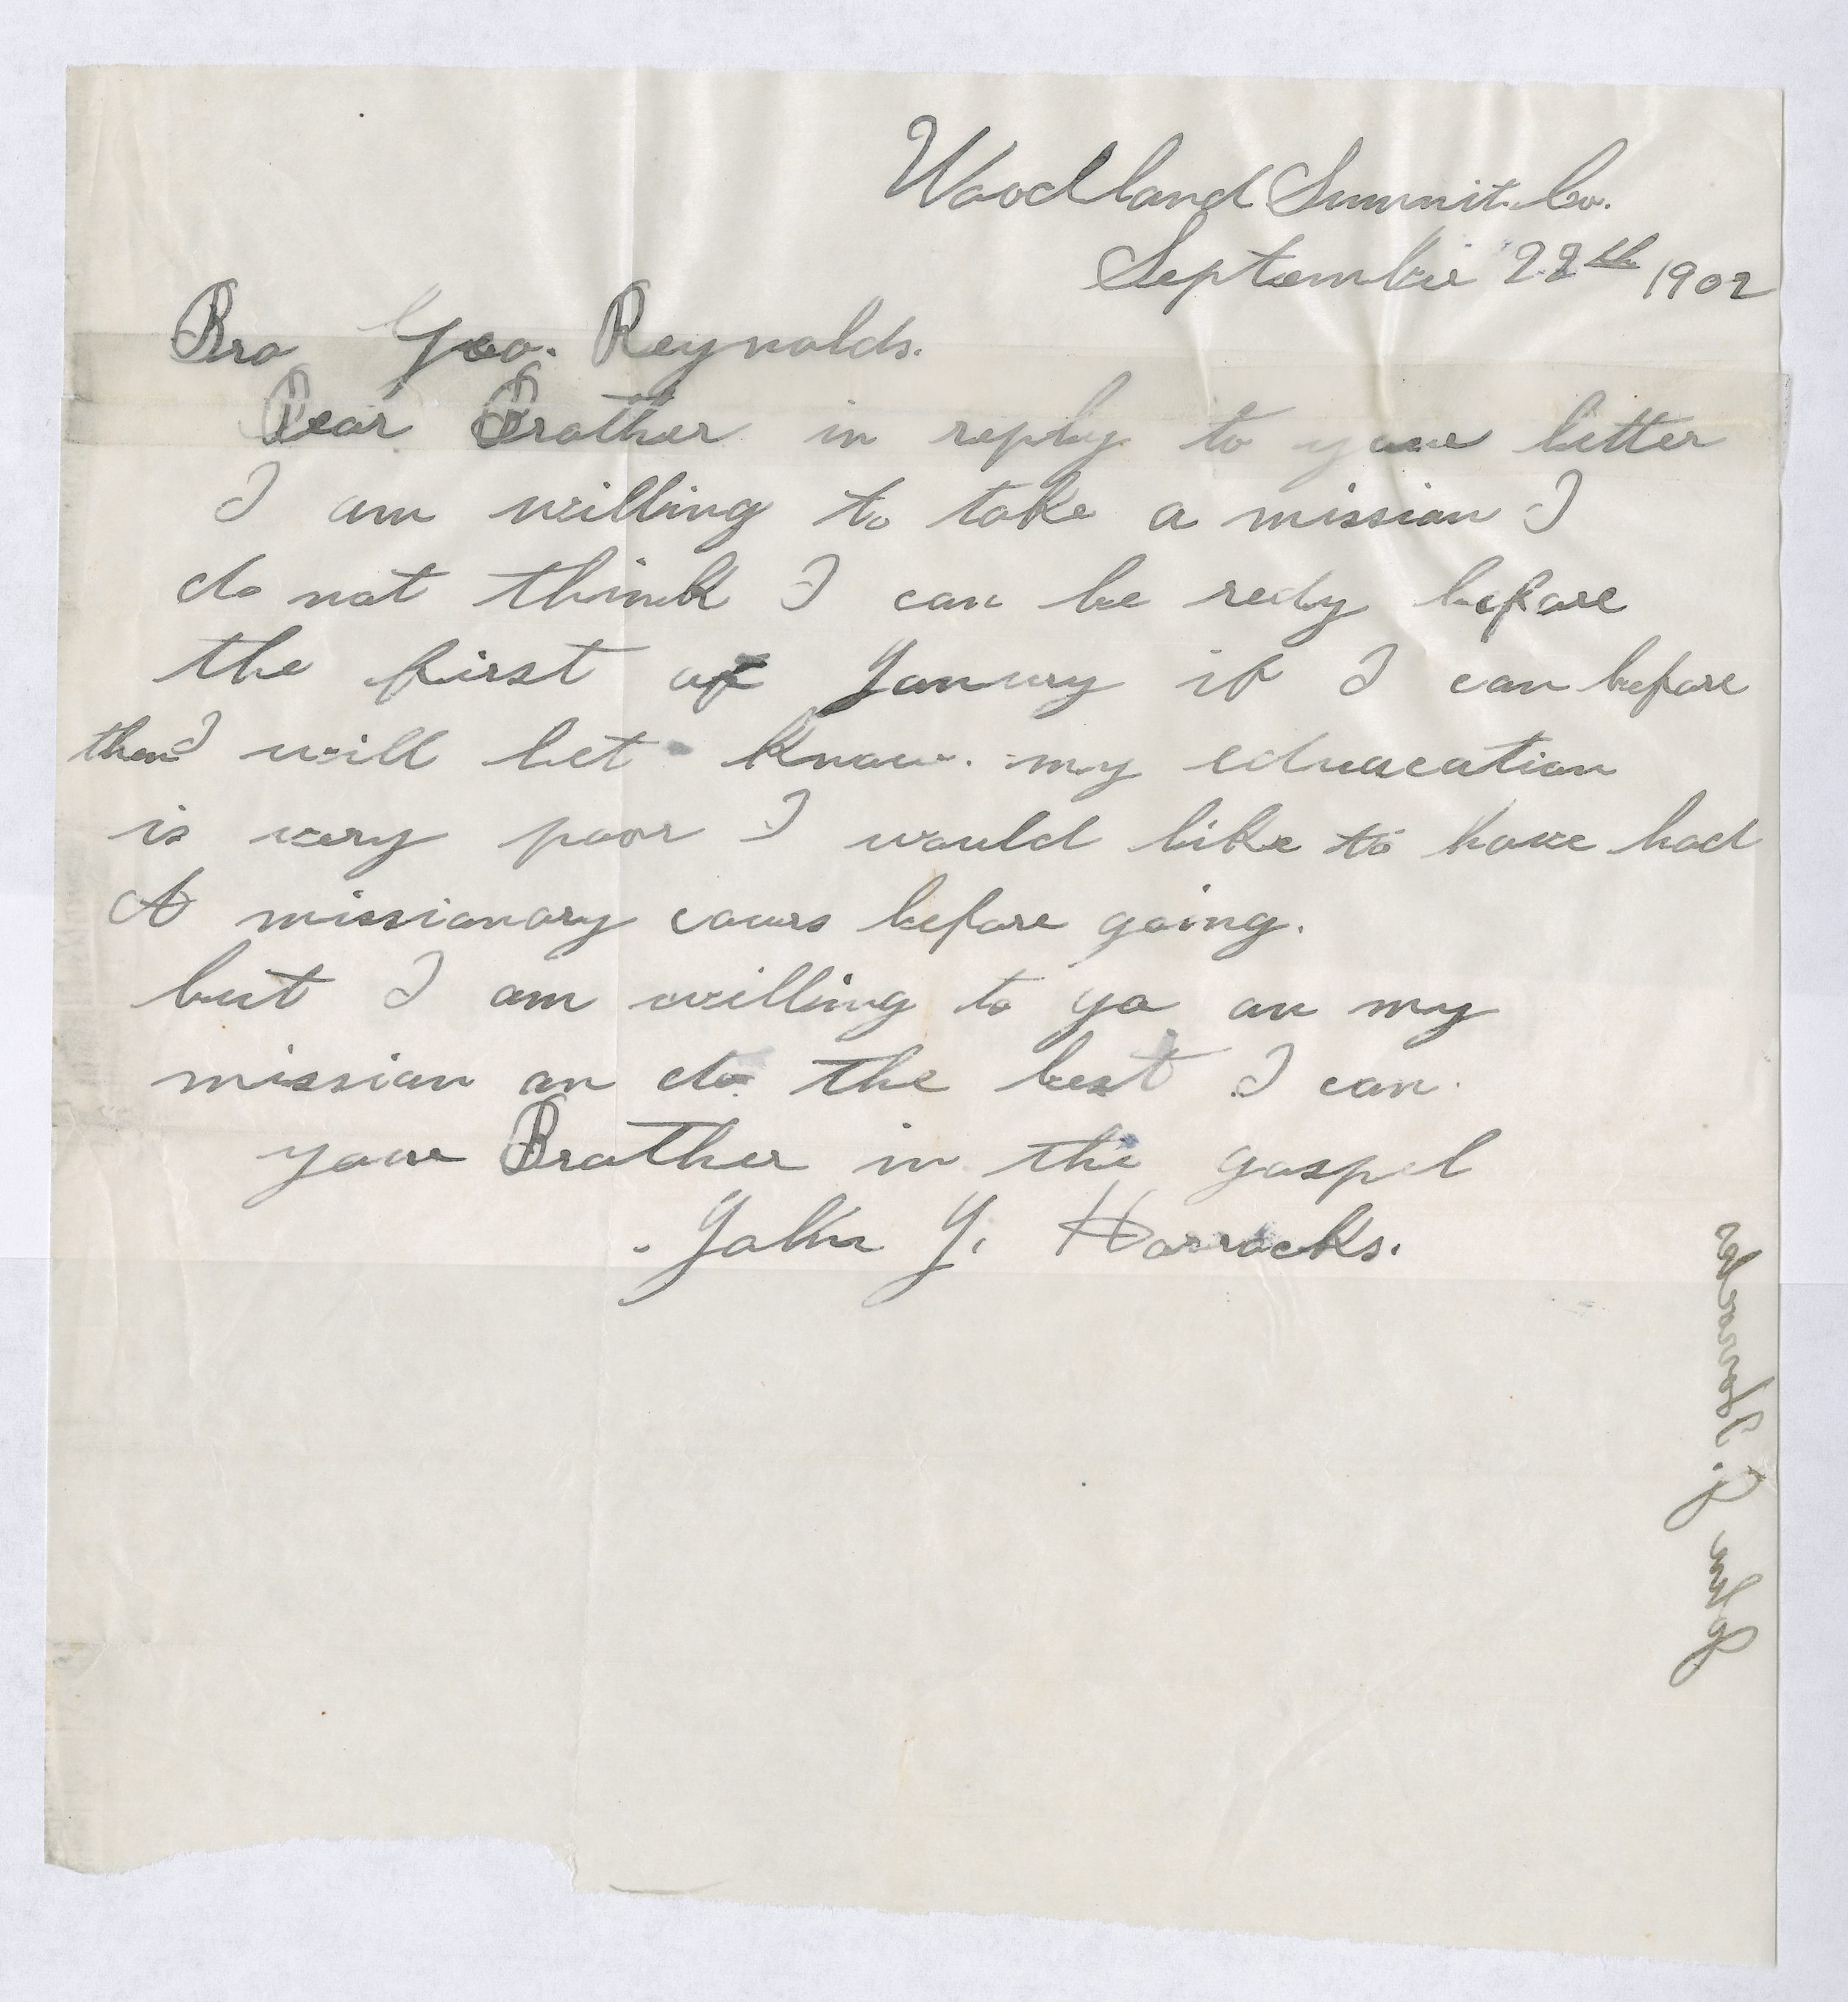 Woodland Summit. Co.
September 22th 1902
Bro Geo. Reynolds.
Dear Brother in reply to your letter
I am willing to take a mission I
do not think I can be redy before
the first of Janury if I can before
then I will let know. my eduacation
is very poor I would like to have had
A missionary cours before going.
but I am willing to go on my
mission an do the best I can.
your Brother in the gospel
John J. Horrocks.
John J. Horrocks